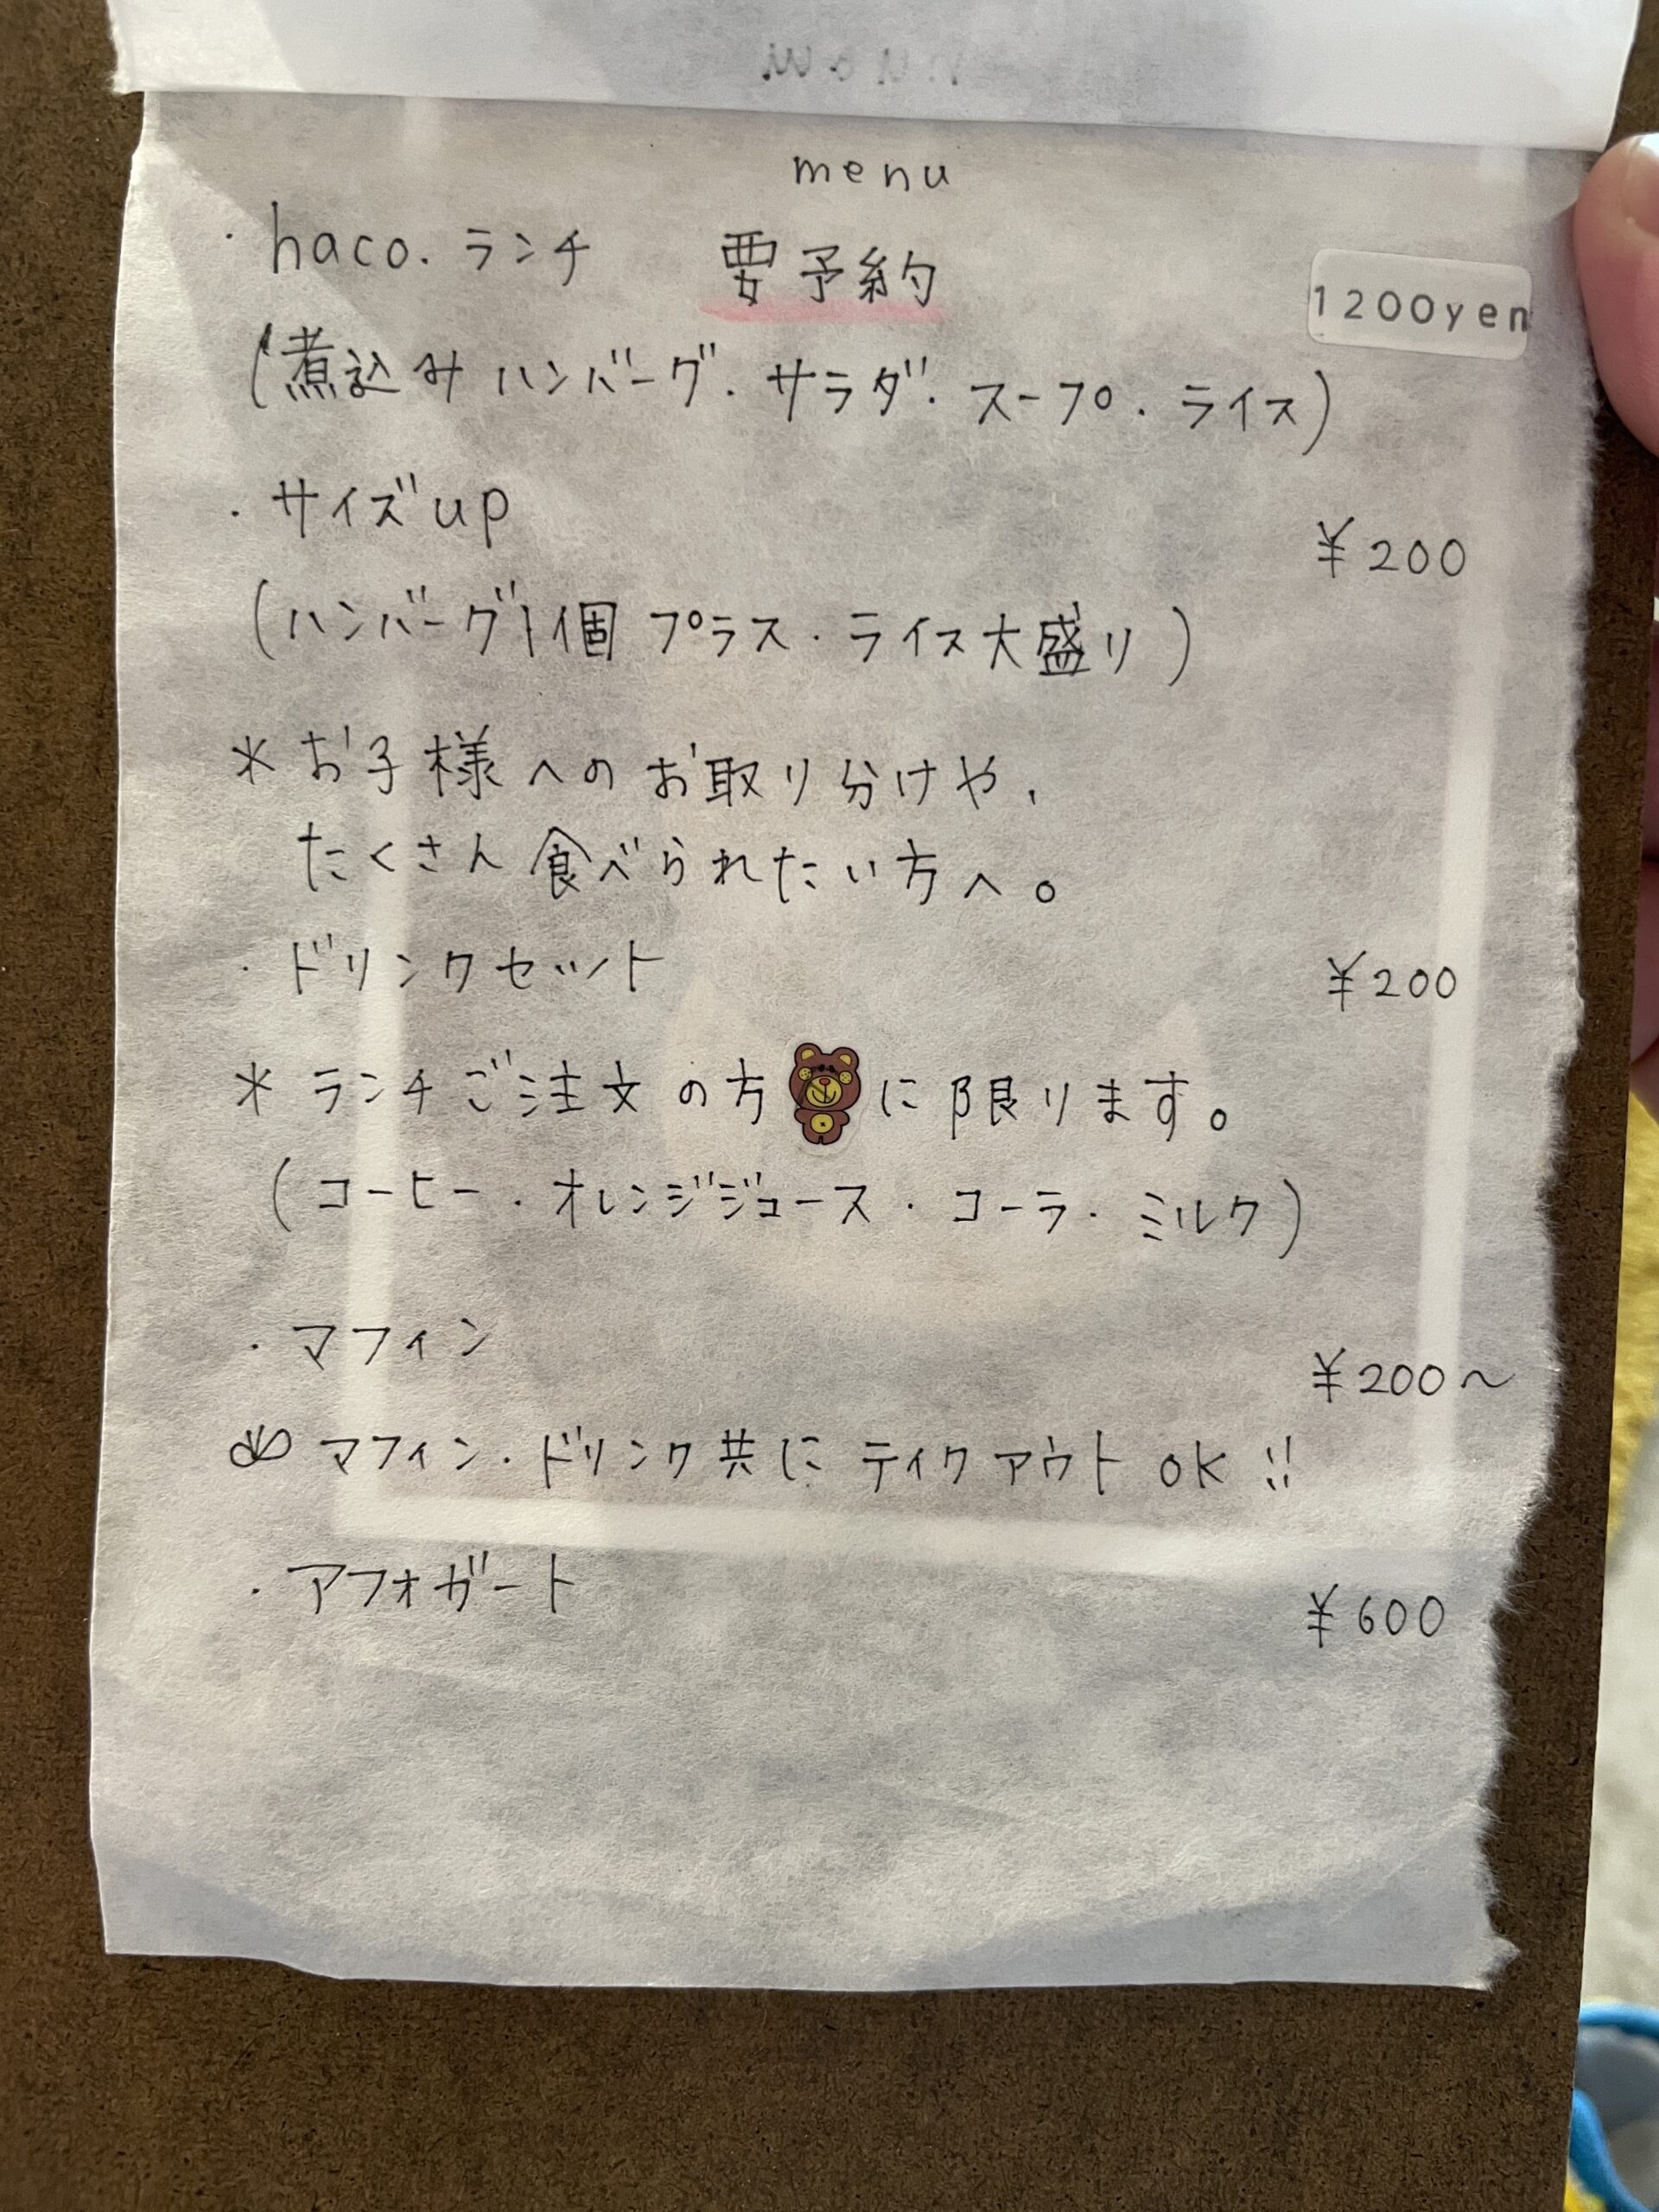 menu
・haco. ランチ 要予約 1200yen
(煮込みハンバーグ・サラダ・スープ・ライス)
・サイズup ¥200
(ハンバーグ1個プラス・ライス大盛り)
* お子様へのお取り分けや、
たくさん食べられたい方へ。
・ドリンクセット ¥200
* ランチご注文の方に限ります。
(コーヒー・オレンジジュース・コーラ・ミルク)
・マフィン ¥200〜
マフィン・ドリンク共にテイクアウトOK!!
・アフォガート ¥600